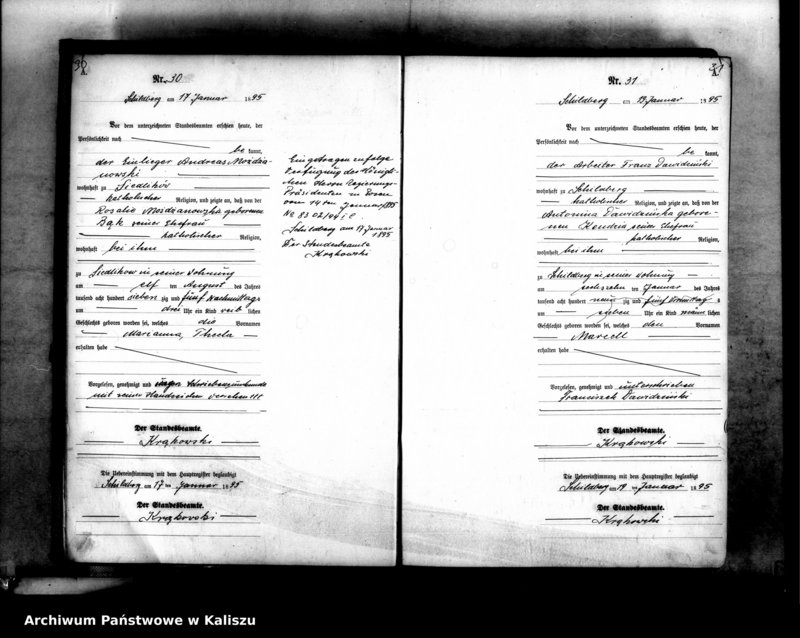 30
Nr. 30
Schildberg am 17 Januar 1895
Vor dem unterzeichneten Standesbeamten erschien heute, der
Persönlichkeit nach
be kannt,
der Einlieger Andreas
nowski
wohnhaft zu Siedlikow
katholischer Religion, und zeigte an, daß von der
Rosalie geborenen
Bąk seiner Ehefrau
katholischer Religion,
wohnhaft bei ihm
zu Siedlikow in seiner Wohnung
am elf ten August des Jahres
tausend acht hundert sieben zig und fünf Nachmittags
um drei Uhr ein Kind weib lichen
Geschlechts geboren worden sei, welches die Vornamen
Marianna, Thecla
erhalten habe
Vorgelesen, genehmigt und
mit seinen Handzeichen versehen +++
Der Standesbeamte.
Krąkowski
Die Uebereinstimmung mit dem Hauptregister beglaubigt
Schildberg am 17 ten Januar 1895
Der Standesbeamte.
Krąkowski
Eingetragen zufolge
Verfügung des Königli-
chen Herrn Regierungs-
Präsidenten in Posen
vom 14 ten Januar 1895
No 83 02/94
Schildberg am 17 Januar
1895
Der Standesbeamte
Krąkowski
31
Nr. 31
Schildberg am 19 Januar 1895
Vor dem unterzeichneten Standesbeamten erschien heute, der
Persönlichkeit nach
be kannt,
der Arbeiter Franz Dawidziński
wohnhaft zu Schildberg
katholischer Religion, und zeigte an, daß von der
Antonina Dawidzińska gebore-
nen seiner Ehefrau
katholischer Religion,
wohnhaft bei ihm
zu Schildberg in seiner Wohnung
am sechszehn ten Januar des Jahres
tausend acht hundert neun zig und fünf Vormittag s
um sieben Uhr ein Kind männ lichen
Geschlechts geboren worden sei, welches den Vornamen
Marcell
erhalten habe
Vorgelesen, genehmigt und unterschrieben
Franciszek Dawidziński
Der Standesbeamte.
Krąkowski
Die Uebereinstimmung mit dem Hauptregister beglaubigt
Schildberg am 19 ten Januar 1895
Der Standesbeamte.
Krąkowski
Archiwum Państwowe w Kaliszu